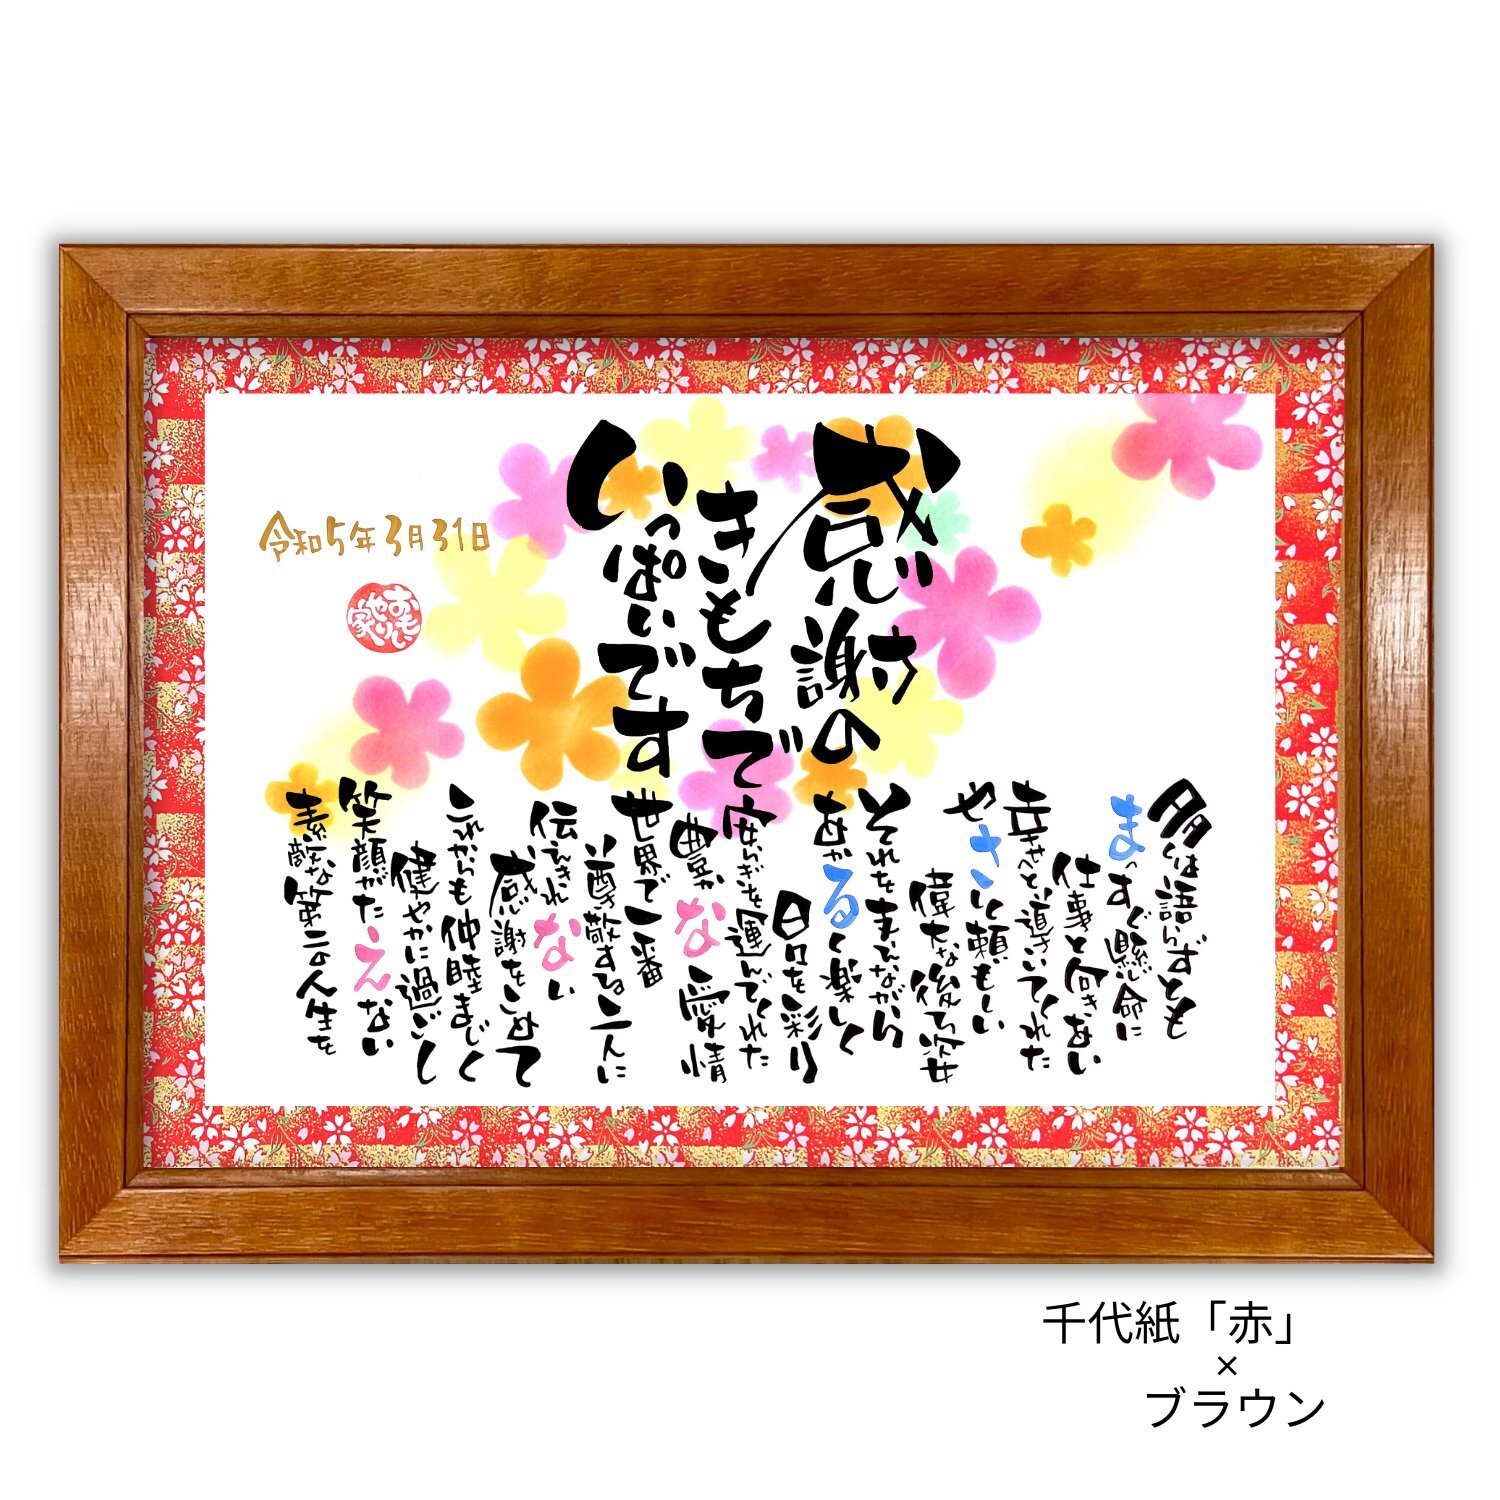 感謝の
きもちで
いっぱいです
令和5年3月31日
おもいやり家
多くは語らずとも
まっすぐ懸命に
仕事と向きあい
幸せへと導いてくれた
やさしく頼もしい
偉大な後ろ姿
それをまねながら
あかるく楽しく
日々を彩り
安らぎを運んでくれた
豊かな愛情
世界で一番
尊敬する二人に
伝えきれない
感謝をこめて
これからも仲睦まじく
健やかに過ごし
笑顔がたえない
素敵な第二の人生を
千代紙「赤」
×
ブラウン